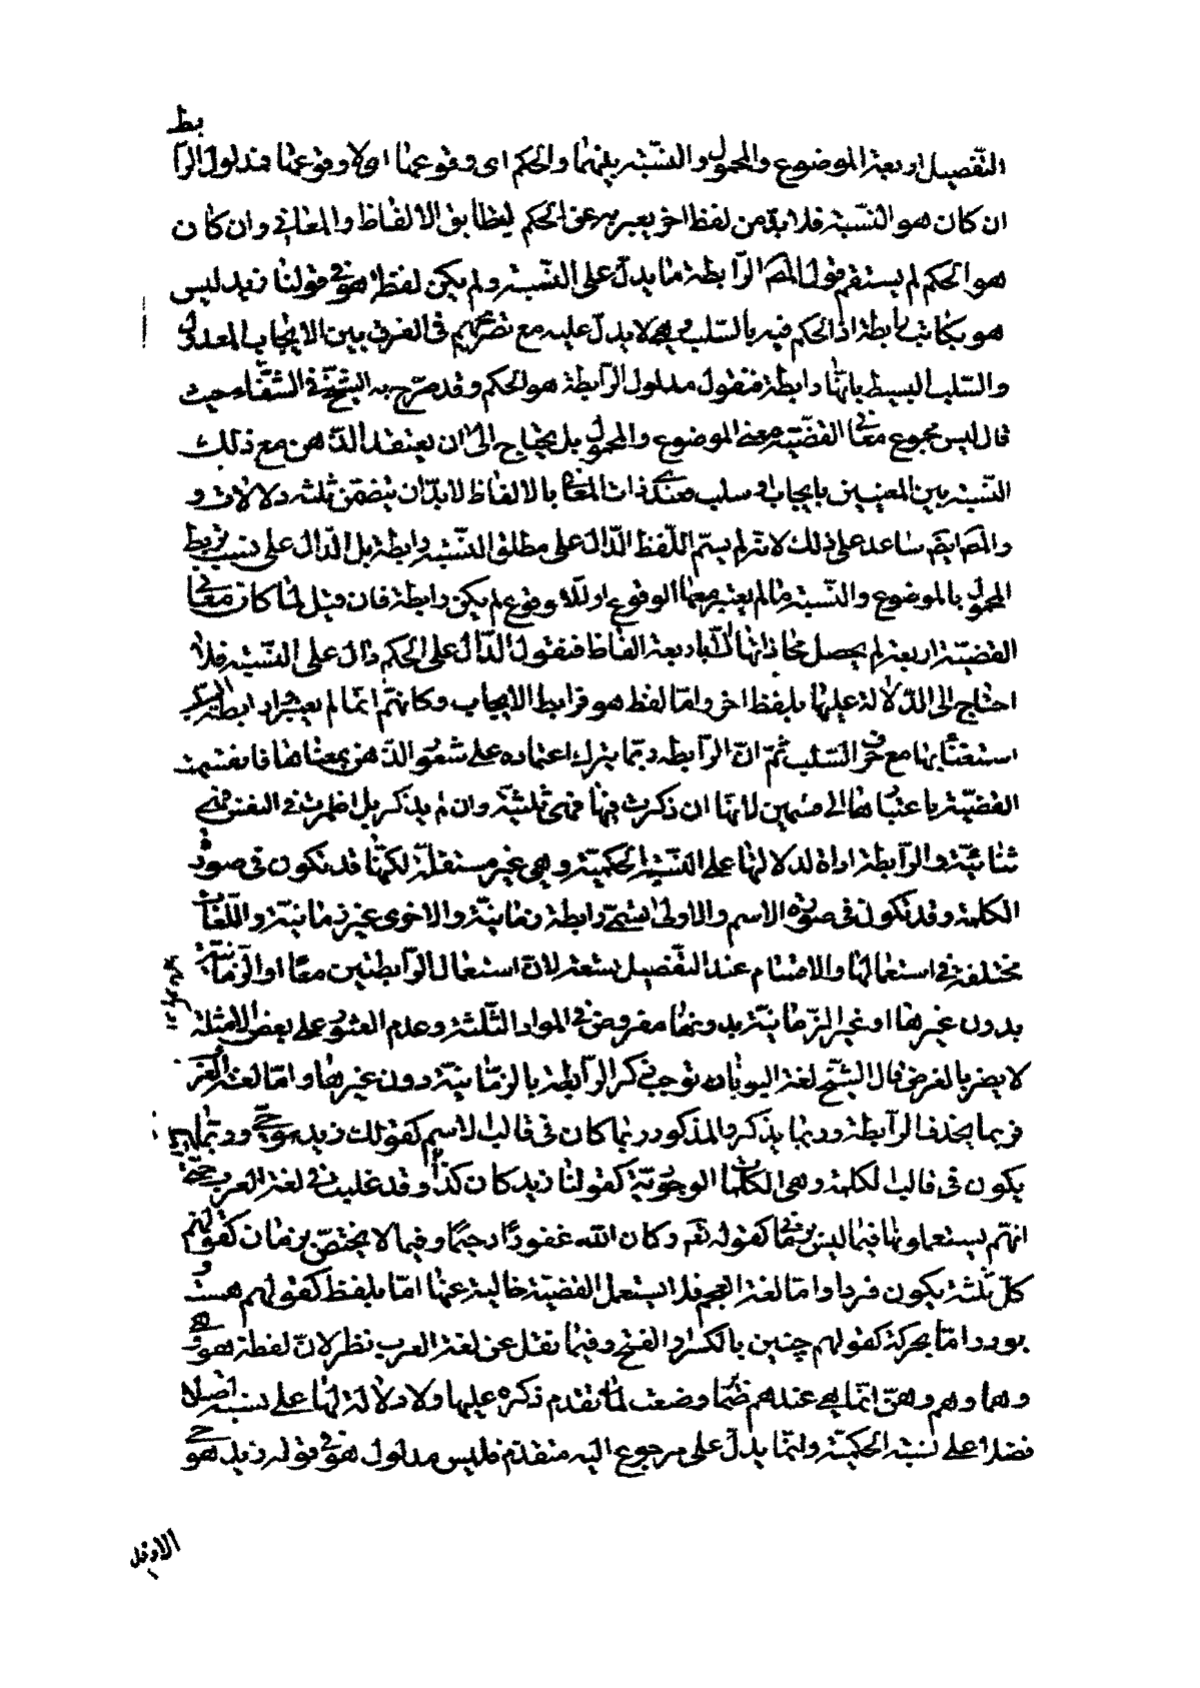 التفصيل اربعة الموضوع والمحمول والنسبة بينهما والحكم اى وقوعها اولا وقوعها فمدلول الرابط
ان كان هو النسبة فلا بد من لفظ اخر يعبر به عن الحكم ليطابق الالفاظ والمعانى وان كان
هو الحكم لم يستقم قول المص الرابطة ما يدل على النسبة ولم يكن لفظ هو فى قولنا زيد ليس
هو بكاتب رابطة اذ الحكم فيه بالسلب وهو لا يدل عليه مع تصريحهم فى الفرق بين الايجاب المعدول
والسلب البسيط بانها رابطة فنقول مدلول الرابطة هو الحكم وقد صرح به الشيخ فى الشفاء حيث
قال ليس مجموع معانى القضية معنى الموضوع والمحمول بل يحتاج الى ان يعتقد الذهن مع ذلك
النسبة بين المعنيين بايجاب او سلب فعند محاذات المعانى بالالفاظ لابد ان يتضمن ثلثه دلالات و
والمص ايضا ساعد على ذلك لانه لم يسم اللفظ الدال على مطلق النسبة رابطة بل الدال على نسبة يربط
المحمول بالموضوع والنسبة ما لم يعتبر معها الوقوع او اللا وقوع لم يكن رابطة فان قيل لما كان معانى
القضية اربعة لم يحصل محاذاتها الا باربعة الفاظ فنقول الدال على الحكم دال على النسبة فلا
احتاج الى الدلالة عليها بلفظ اخر واما لفظ هو فرابط الايجاب وكانهم انما لم يعتبروا رابطة السلب
استغناء بها مع حرف السلب ثم ان الرابطه ربما يترك اعتمادا على شعور الذهن بمعناها فانقسمت
القضية باعتبارها الى قسمين لانها ان ذكرت فيها فهى ثلثية وان لم يذكر بل اضمرت فى النفس فهى
ثنائية والرابطة اداة لدلالتها على النسبة الحكمية وهى غير مستقلة لكنها قد تكون فى صورة
الكلمة وقد تكون فى صورة الاسم والاولى تسمى رابطة زمانية والاخرى غير زمانية واللغات
مختلفة فى استعمالها والاقسام عند التفصيل تسعة لان استعمال الرابطتين معا او الزمانية
بدون غيرها او غير الزمانية بدونها مفروض فى المواد الثلثة وعدم العثور على بعض الامثلة
لا يضر بالغرض قال الشيخ لغة اليونان توجب ذكر الرابطة بالزمانية دون غيرها واما لغة العرب
فربما يحذف الرابطة وربما يذكر والمذكور ربما كان فى قالب الاسم كقولك زيد هو حى وربما
يكون فى قالب الكلمة وهى الكلمات الوجودية كقولنا زيد كان كذا وقد غلبت فى لغة العرب حتى
انهم يستعملونها فيما ليس بزمانى كقوله تعم وكان الله غفورا رحيما وفيما لا يختص بزمان كقولهم
كل ثلثة يكون فردا واما لغة العجم فلا يستعمل القضية خالية عنها اما بلفظ كقولهم هست و
بود واما بحركة كقولهم چنين بالكسر او الفتح وفيما نقل عن لغة العرب نظر لان لفظة هو وهى
وهما وهم وهن انما هى عندهم ضمائر وضعت لما تقدم ذكره عليها ولا دلالة لها على نسبة اصلا
فضلا على نسبة الحكمية وانما يدل على مرجوع اليه متقدم فليس مدلول هو فى قوله زيد هو حى